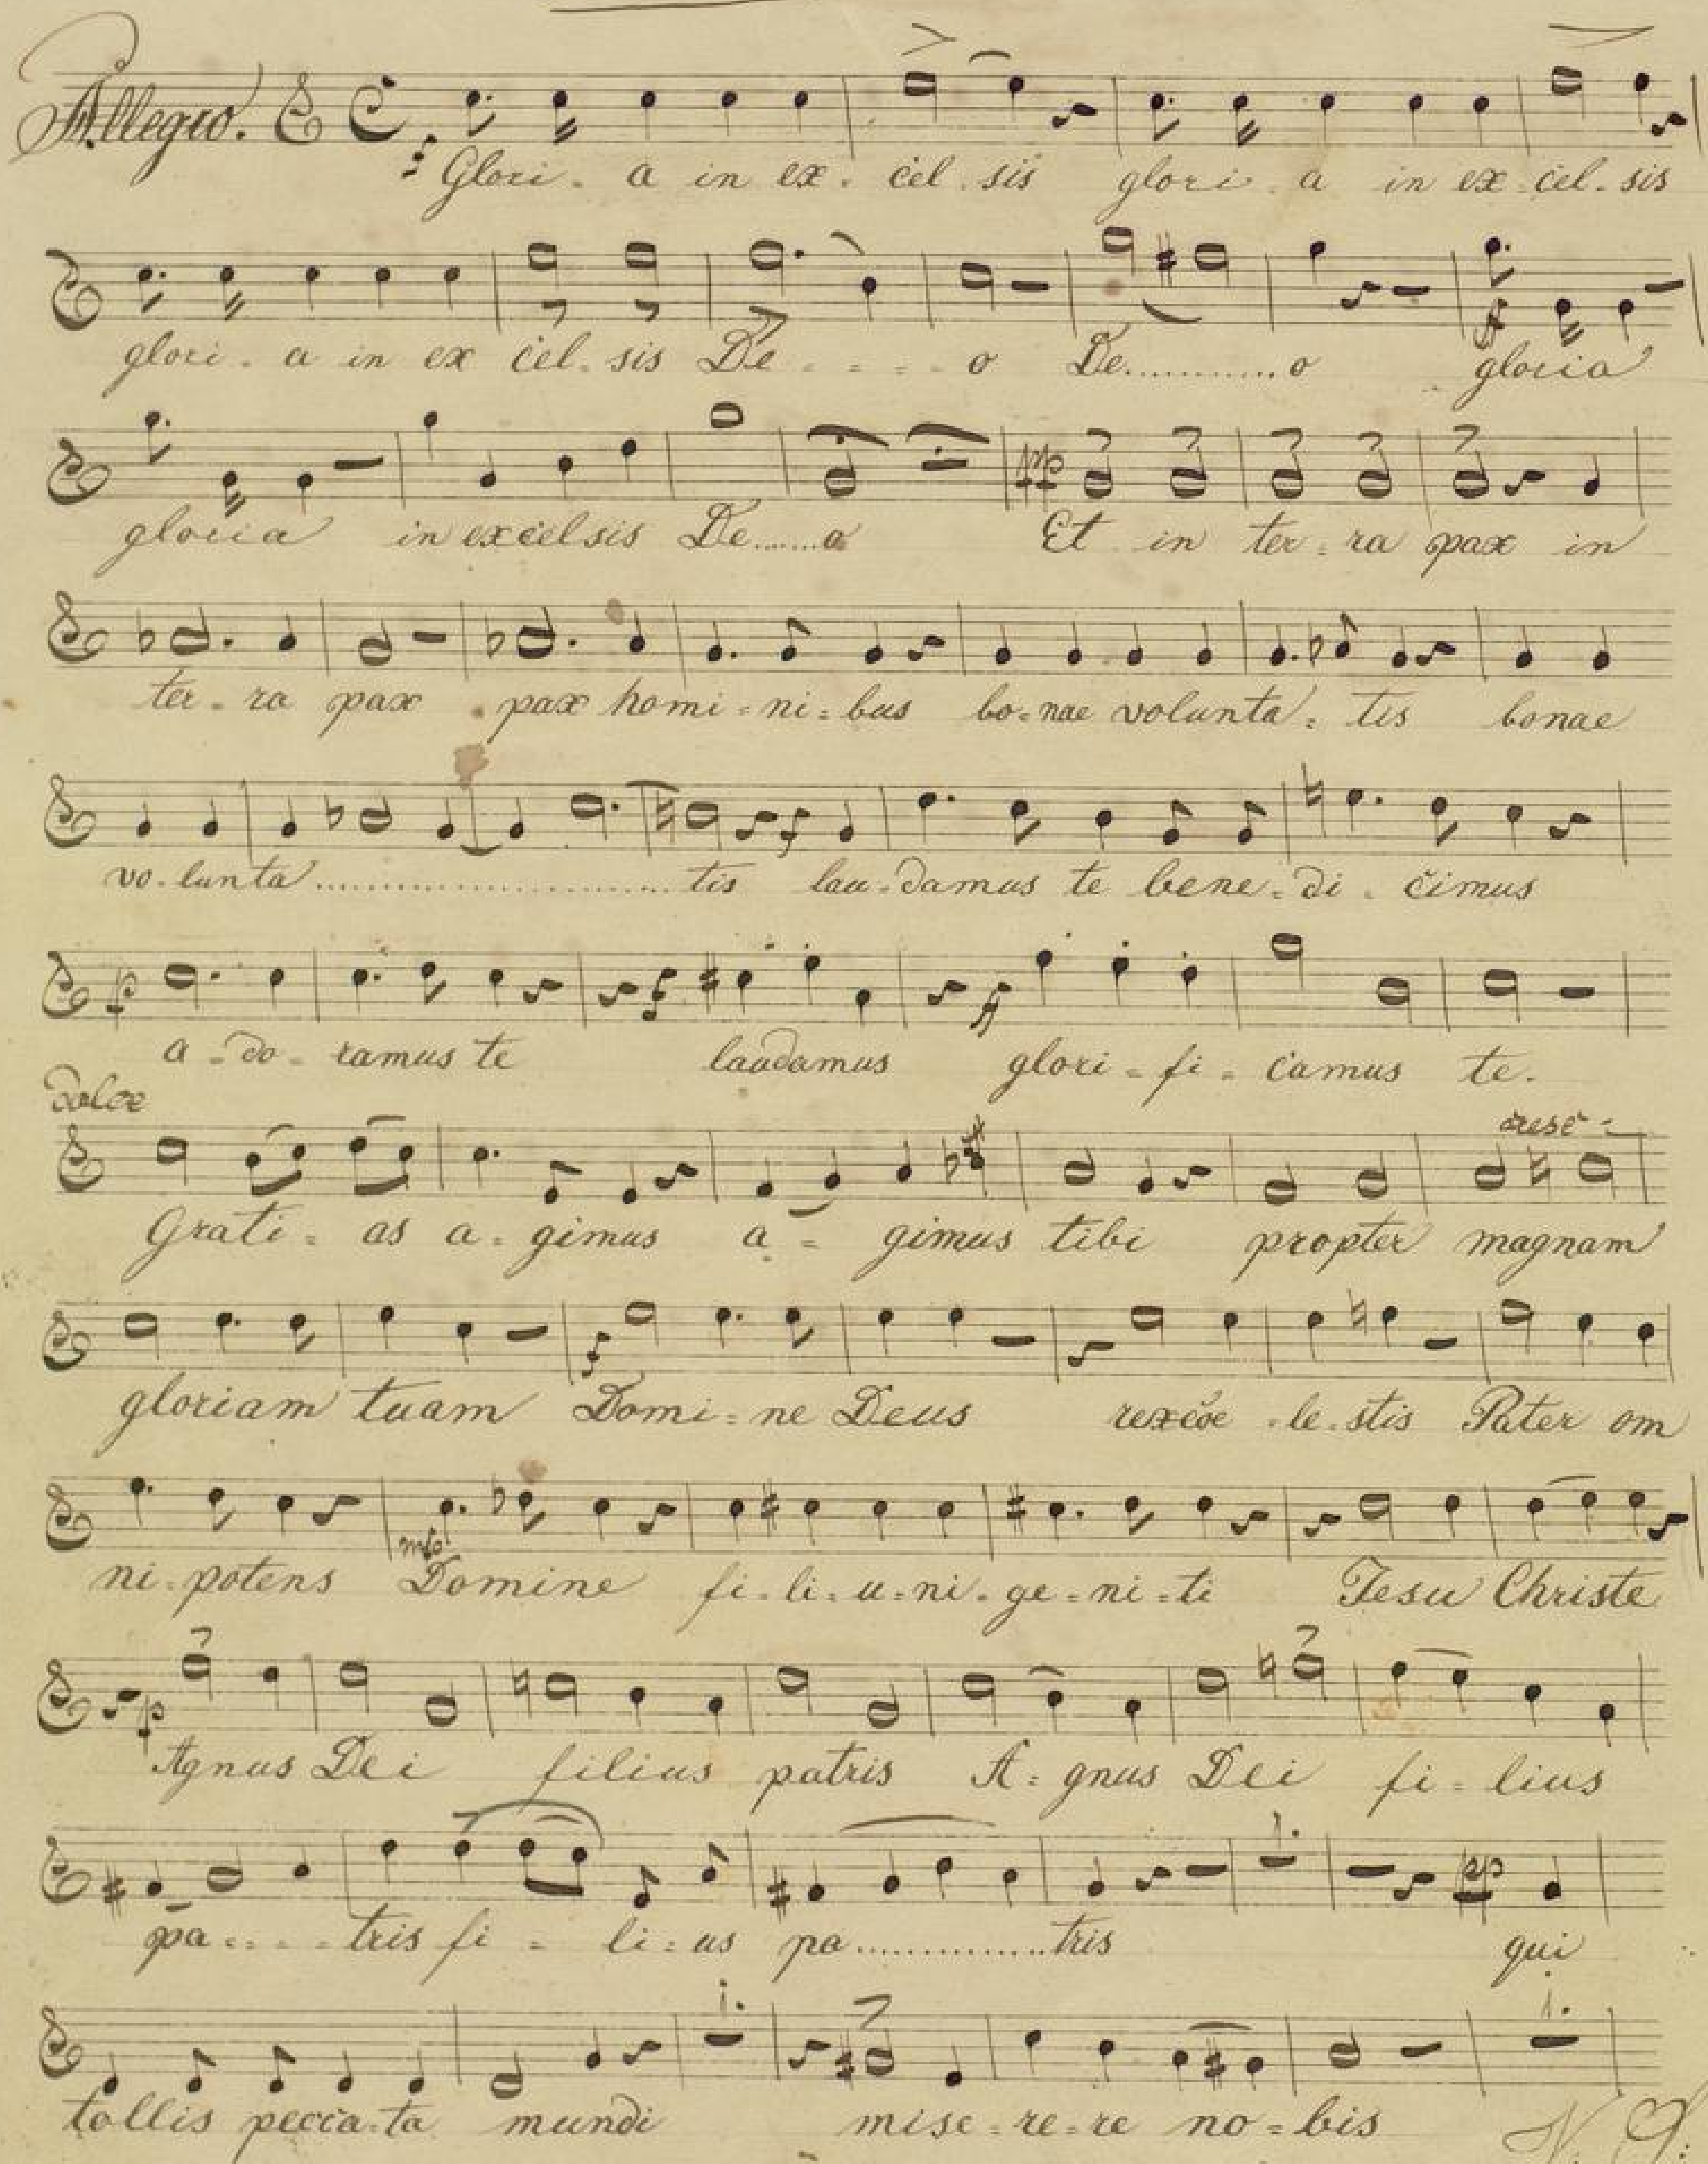 Allegro.
Glori - a in ex - cel - sis glori - a in ex cel - sis
glori - a in ex cel - sis De - - - - o De............o gloria
gloria in excelsis De.......o Et in ter - ra pax in
ter - ra pax pax homi - ni - bus bo - nae volunta - tis bonae
vo - lunta........................tis lau - damus te bene - di - cimus
a - do - ramus te laudamus glori - fi - camus te.
dolce
cresc -
Grati - as a - gimus a - gimus tibi propter magnam
gloriam tuam Domi - ne Deus rex coe - le - stis Pater om
ni - potens Domine fi - li - u - ni - ge - ni - ti Jesu Christe
Agnus Dei filius patris A - gnus Dei fi - lius
pa - - - - tris fi - li - us pa...............tris qui
tollis pecca - ta mundi mise - re - re no - bis